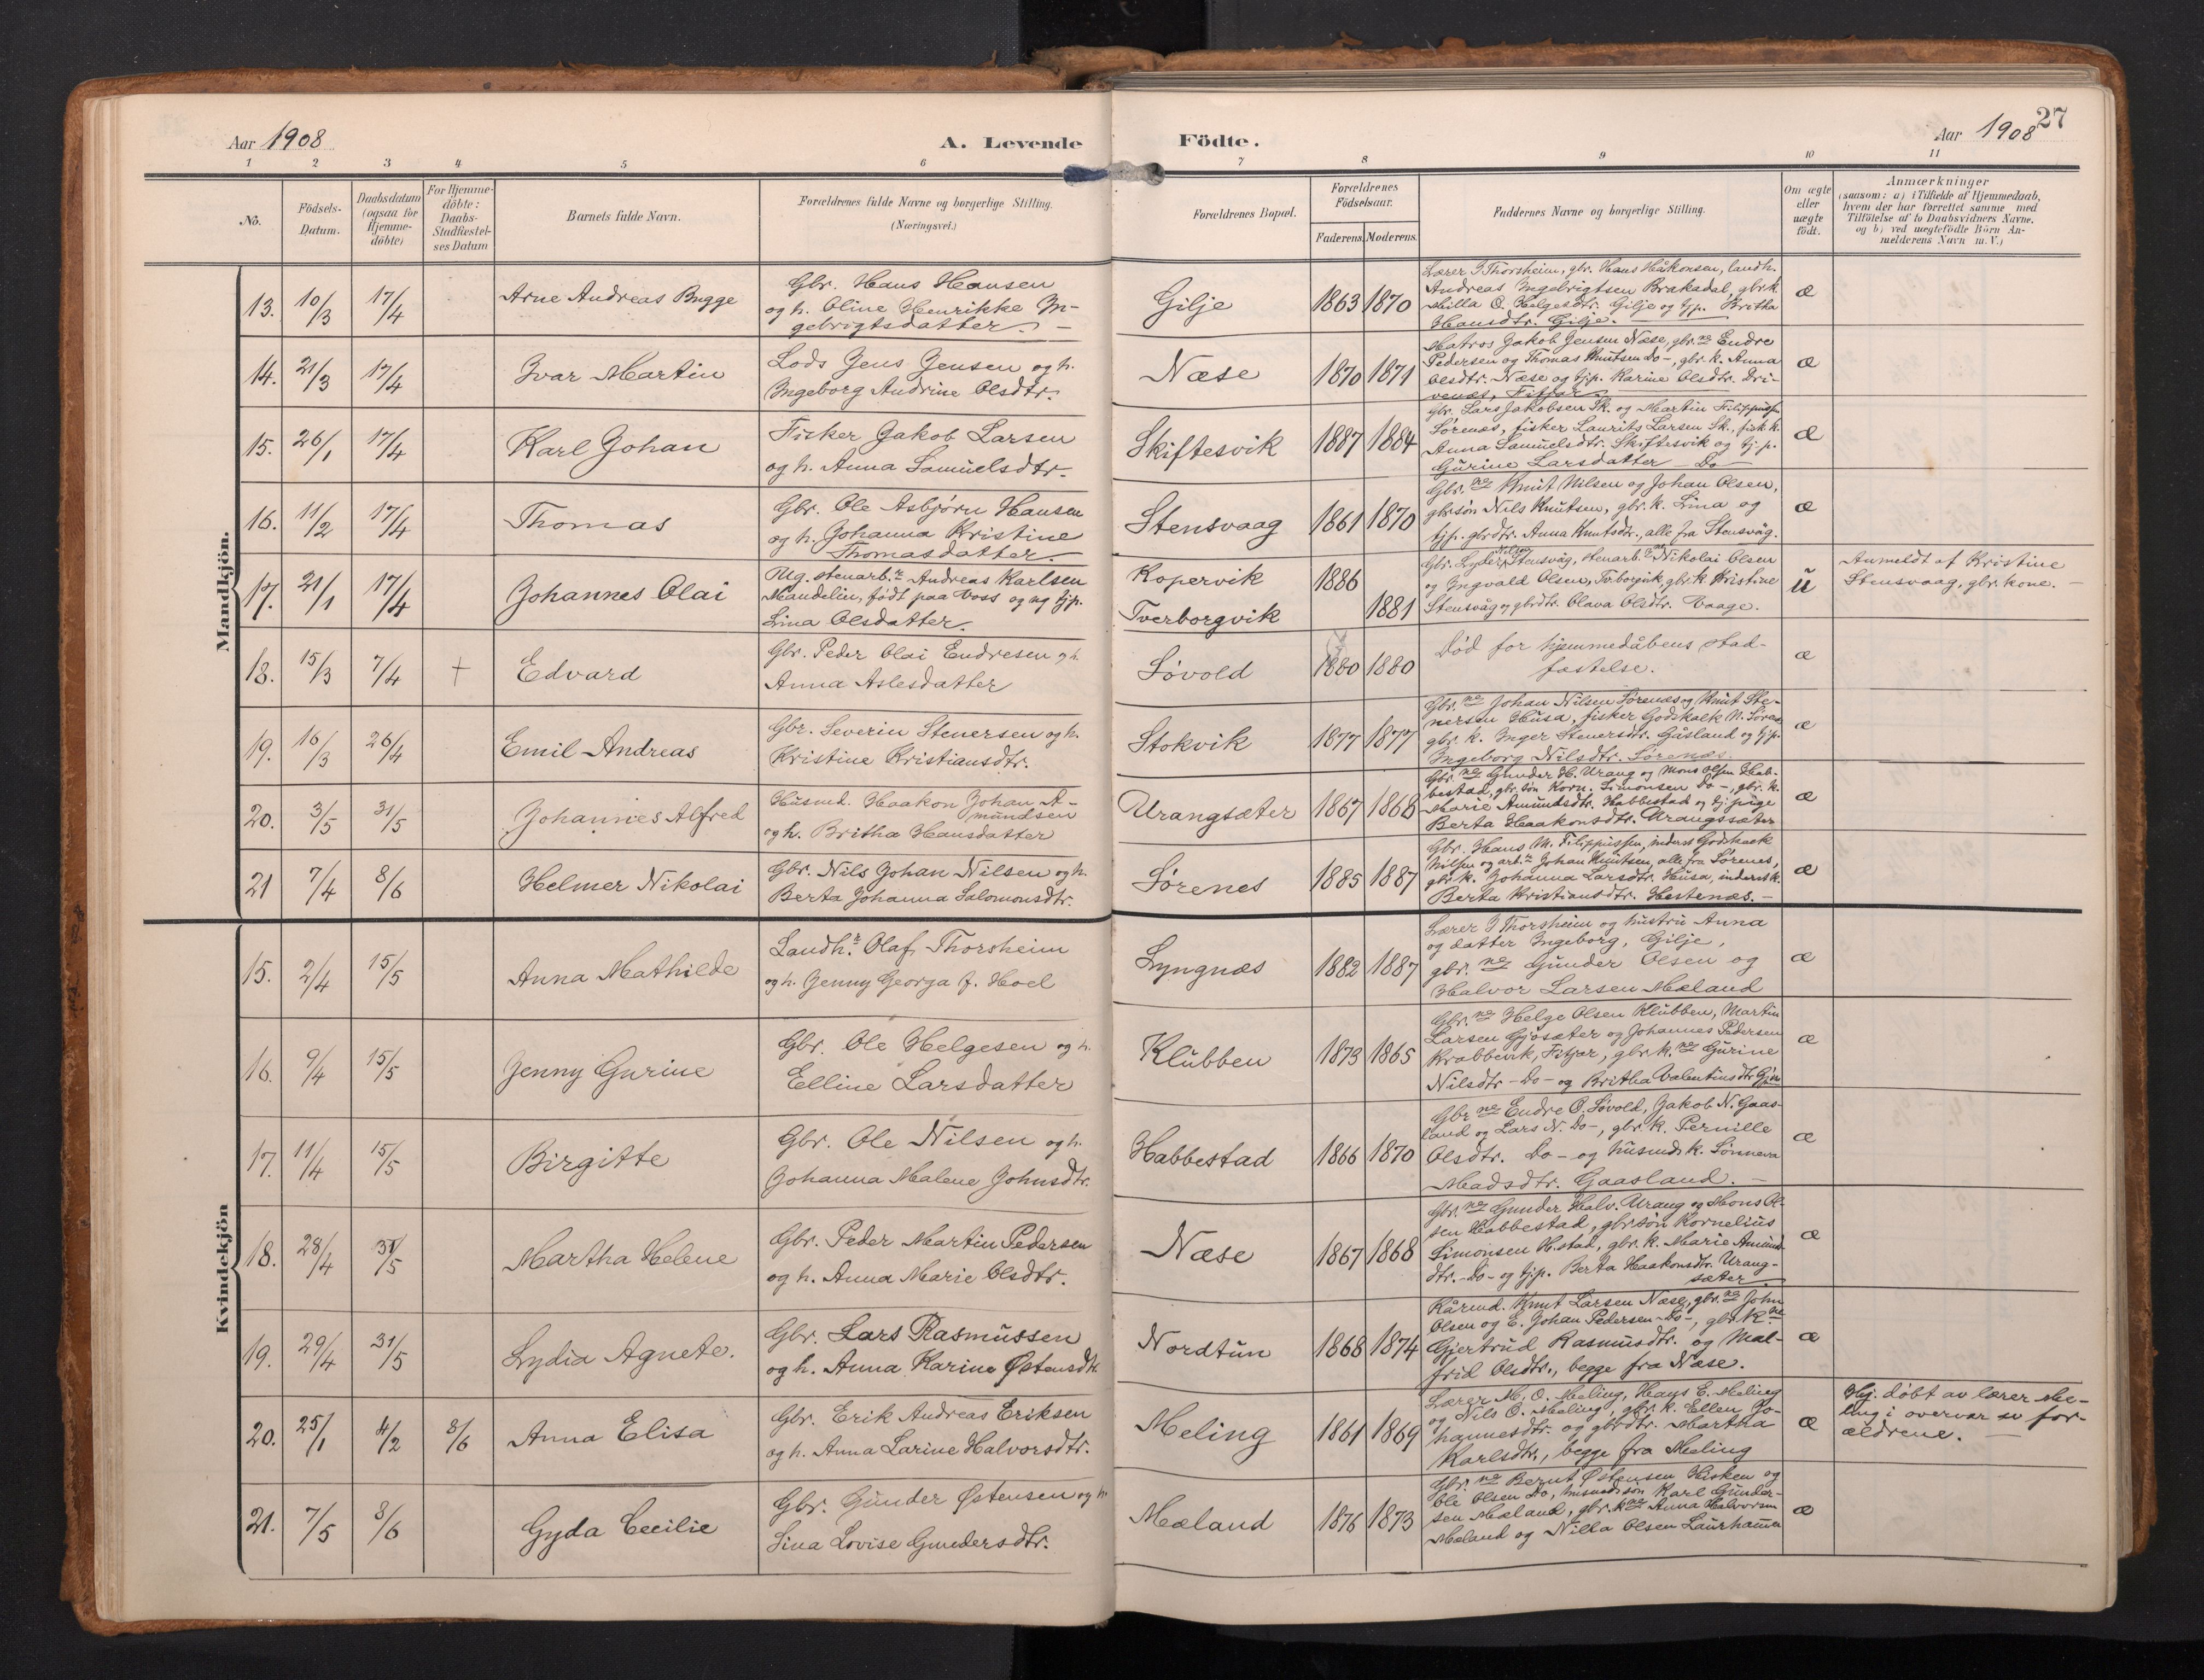 Aar 1908
A. Levende
Födte.
Aar 1908
27
1 2 3 4 5 6 7 8 9 10 11
No.
Födsels-
Datum.
Daabsdatum
(ogsaa for
Hjemme-
döbte)
For Hjemme-
döbte:
Daabs-
Stadfæstel-
ses Datum
Barnets fulde Navn.
Forældrenes fulde Navne og borgerlige Stilling.
(Næringsvei.)
Forældrenes Bopæl.
Forældrenes
Födselsaar.
Faderens. Moderens.
Faddernes Navne og borgerlige Stilling.
Om ægte
eller
uægte
födt.
Anmærkninger
(saasom: a) i Tilfælde af Hjemmedaab,
hvem der har forrettet samme med
Tilföielse af to Daabsvidners Navne.
og b) ved uægtefödte Börn An-
melderens Navn m.V.)
Mandkjön.
13. 10/3 17/4
Arne Andreas Bugge
Gbr. Hans Hansen
og h. Oline Henrikke In-
gebrigtsdatter. —
Gilje 1863 1870
Lærer I Thorsheim, gbr. Hans Håkonsen, landh.
Andreas Ingebrigtsen Brakedal, gbr. k
Milla O. Helgesdtr. Gilje og tjp. Britha
Hansdtr. Gilje.
æ
14. 21/3 17/4
Ivar Martin
Lods Jens Jensen og h.
Ingeborg Andrine Olsdtr.
Næse 1870 1871
Matros Jakob Jensen Næse, gbr. ne Endre
Pedersen og Thomas Knutsen Do-, gbr. k. Anna
Olsdtr. Næse og tjp. Karine Olsdtr. Dri-
venes, Fitjar.
æ
15. 26/1 17/4
Karl Johan
Fisker Jakob Larsen
og h. Anna Samuelsdtr.
Skiftesvik 1887 1884
Gbr. Lars Jakobsen Sk. og Martin Filippussen
Sørenæs, fisker Laurits Larsen Sk., fisk. k.
Anna Samuelsdtr. Skiftesvik og tj. p.
Gurine Larsdatter — Do —
æ
16. 11/2 17/4
Thomas
Gbr. Ole Asbjørn Hansen
og h. Johanna Kristine
Thomasdatter.
Stensvaag 1861 1870
Gbr. ne Knut Nilsen og Johan Olsen,
gbr.søn Nils Knutsen, gbr. k. Lina og
tjp. gbrdtr. Anna Knutsdtr., alle fra Stensvåg.
æ
17. 21/1 17/4
Johannes Olai
Ug. stenarb.r Andreas Karlsen
Mandelin, født paa Voss og ug tjp.
Lina Olsdatter.
Kopervik 1886
Tverborgvik 1881
Gbr. Lyder Stensvåg, stenarb. Nikolai Olsen
og Ingvald Olsen, Tverborgvik, gbr. k. Kristine
Stensvåg og gbrdtr. Olava Olsdtr. Vaage.
ü
Anmeldt af Kristine
Stensvaag, gbr. kone. —
18. 15/3 7/4 +
Edvard
Gbr. Peder Olai Endresen og h.
Anna Aslesdatter
Løvold 1880 1880
Død før hjemmedåbens stad-
fæstelse.
æ
19. 16/3 26/4
Emil Andreas
Gbr. Severin Stenersen og h.
Kristine Kristiansdtr.
Stokvik 1877 1877
Gbr. ne Johan Nilsen Sørenæs og Knut Ste-
nersen Husa, fisker Godskalk N. Søren.
gbr. k. Inger Stenersdtr. Gåsland og tjp.
Ingeborg Nilsdtr. Sørenæs.
æ
20. 3/5 31/5
Johannes Alfred
Husmd. Haakon Johan A-
mundsen
og h. Britha Hansdatter
Urangsæter 1867 1868
Gbr. ne Gunder H. Urang og Mons Olsen Hab-
bestad, gbr. søn Korn. Simonsen Do-, gbr. k.
Marie Amundsdtr. Habbestad og tj. pige
Berta Haakonsdtr. Urangsæter
æ
21 7/4 8/6
Helmer Nikolai
Gbr. Nils Johan Nilsen og h.
Berta Johanna Salomonsdtr.
Sørenes 1885 1887
Gbr. Hans M. Filippussen, inderst Godskalk
Nilsen og arb.r Johan Knutsen, alle fra Sørenes,
gbr. k. Johanna Larsdtr. Husa, inderst k.
Berta Kristiansdtr. Hestenæs. —
æ
Kvindekjön
15. 2/4 15/5
Anna Mathilde
Landh.r Olaf Thorsheim
og h. Jenny Georga f. Hoel
Lyngnæs 1882 1887
Lærer I Thorsheim og hustru Anna
og datter Ingeborg, Gilje,
gbr. ne Gunder Olsen og
Halvor Larsen Mæland
æ
16. 9/4 15/5
Jenny Gurine
Gbr. Ole Helgesen og h.
Elline Larsdatter
Klubben 1873 1865
Gbr. ne Helge Olsen Klubben, Martin
Larsen Gjøsæter og Johannes Pedersen
Krabbevik, Fitjar, gbr. k. ne Gurine
Nilsdtr - Do - og Britha Valentinsdtr
æ
17. 11/4 15/5
Birgitte
Gbr. Ole Nilsen og h.
Johanna Malene Johnsdtr.
Habbestad 1866 1870
Gbr ne Endre O. Løvold, Jakob N. Gaas-
land og Lars N. Do-, gbr. k. Pernille
Olsdtr. Do - og husmds k. Sønneva
Madsdtr. Gaasland. —
æ
18. 28/4 31/5
Martha Helene
Gbr. Peder Martin Pedersen
og h. Anna Marie Olsdtr.
Næse 1867 1868
Gbr. ne Gunder Halv. Urang og Mons Ol-
sen Habbestad, gbr.søn Kornelius
Simonsen H.stad, gbr. k. Marie Amund-
dtr. - Do - og tjp. Berta Haakonsdtr. Urang-
sæter
æ
19. 29/4 31/5
Lydia Agnete.
Gbr. Lars Rasmussen
og h. Anna Karine Østensdtr.
Nordtun 1868 1874
Kårmd. Knut Larsen Næse, gbr. ne John
Olsen og E. Johan Pedersen - Do -, gbr. k. ne
Gjertrud Rasmusdtr. og Mal-
frid Olsdtr., begge fra Næse.
æ
20. 25/1 4/2 8/6
Anna Elisa
Gbr. Erik Andreas Eriksen
og h. Anna Larine Halvorsdtr.
Meling 1861 1869
Lærer M. O. Meling, Hans E. Meling
og Nils O. Meling, gbr. k. Ellen Jo-
hannesdtr. og gbrdtr. Martha
Karlsdtr., begge fra Meling
æ
Hj. døbt av lærer Me-
ling i overvær av for-
ældrene. —
21. 7/5 8/6
Gyda Cecilie
Gbr. Gunder Østensen og h.
Sina Lovise Gundersdtr.
Mæland 1876 1873
Gbr. ne Bernt Østensen Hisken og
Ole Olsen Do, husmdssøn Karl Gunder-
sen Mæland, gbr. k. ne Anna Halvorsen
Mæland og Nilla Olsen Laurhammer
æ